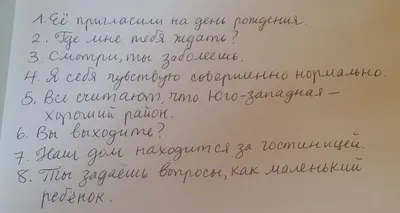 1. Её пригласили на день рождения.
2. Где мне тебя ждать?
3. Смотри, ты заболеешь.
4. Я себя чувствую совершенно нормально.
5. Все считают, что Юго-западная –
хороший район.
6. Вы выходите?
7. Наш дом находится за гостиницей.
8. Ты задаёшь вопросы, как маленький
ребёнок.